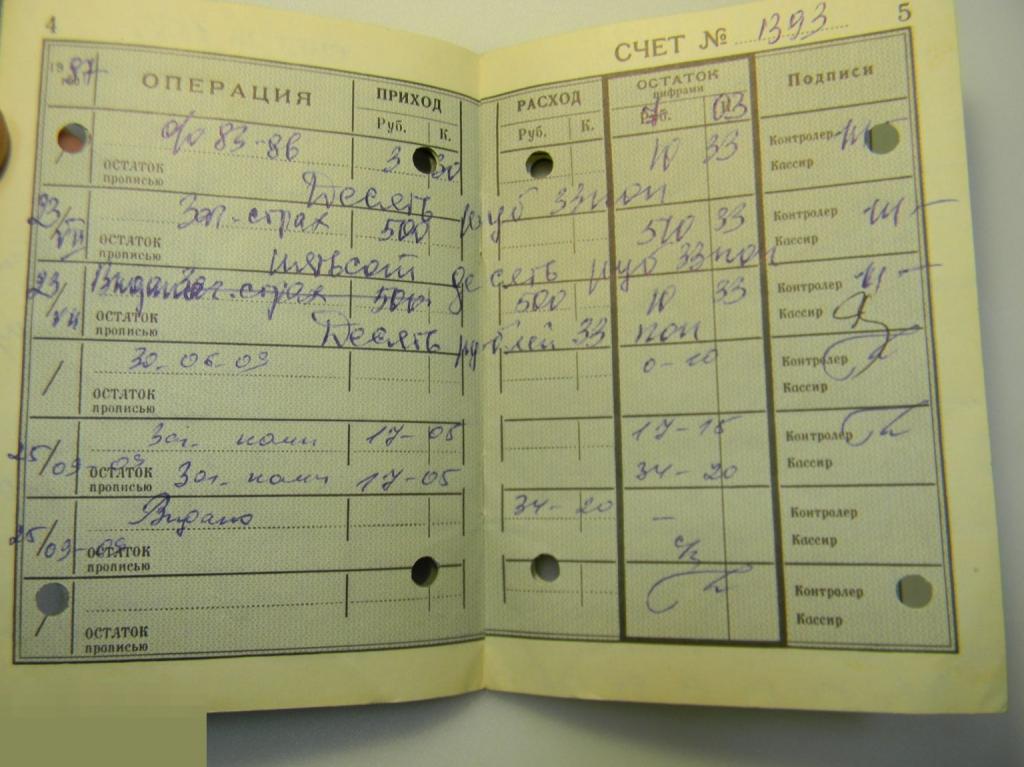 4
19 87 год
ОПЕРАЦИЯ
ПРИХОД
Руб. К.
% 83-86 3 30
ОСТАТОК
прописью
Десять руб 33 коп
23/VII Заг. страх 500
ОСТАТОК
прописью
пятьсот десять руб 33 коп
23/VII заг. страх 500
ОСТАТОК
прописью
Десять рублей 33 коп
30-06-09
ОСТАТОК
прописью
25/09-09 комп 17-05
ОСТАТОК
прописью
комп 17-05
25/09-09 Видано
ОСТАТОК
прописью
ОСТАТОК
прописью
5
СЧЕТ № 1393
РАСХОД
Руб. К.
ОСТАТОК
цифрами
7 03
Подписи
10 33
Контролер
Кассир
510 33
Контролер
Кассир
500 10 33
Контролер
Кассир
0-10
Контролер
Кассир
17-15
Контролер
34-20
Кассир
34-20 —
Контролер
Кассир
Контролер
Кассир